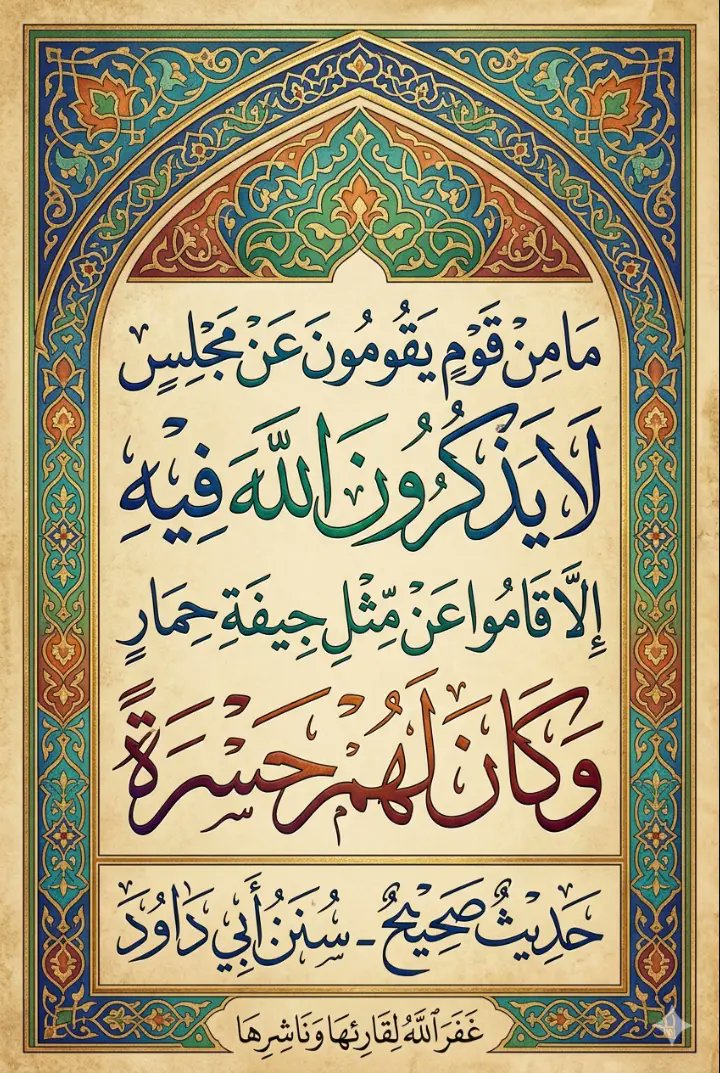 مَا مِنْ قَوْمٍ يَقُومُونَ عَنْ مَجْلِسٍ
لَا يَذْكُرُونَ اللَّهَ فِيْهِ
إِلَّا قَامُوا عَنْ مِّثْلِ جِيفَةِ حِمَارٍ
وَكَانَ لَهُمْ حَسْرَةً
حَدِيثٌ صَحِيْحٌ - سُنَنُ أَبِي دَاوُدَ
غَفَرَ ٱللَّهُ لِقَارِئِهَا وَنَاشِرِهَا